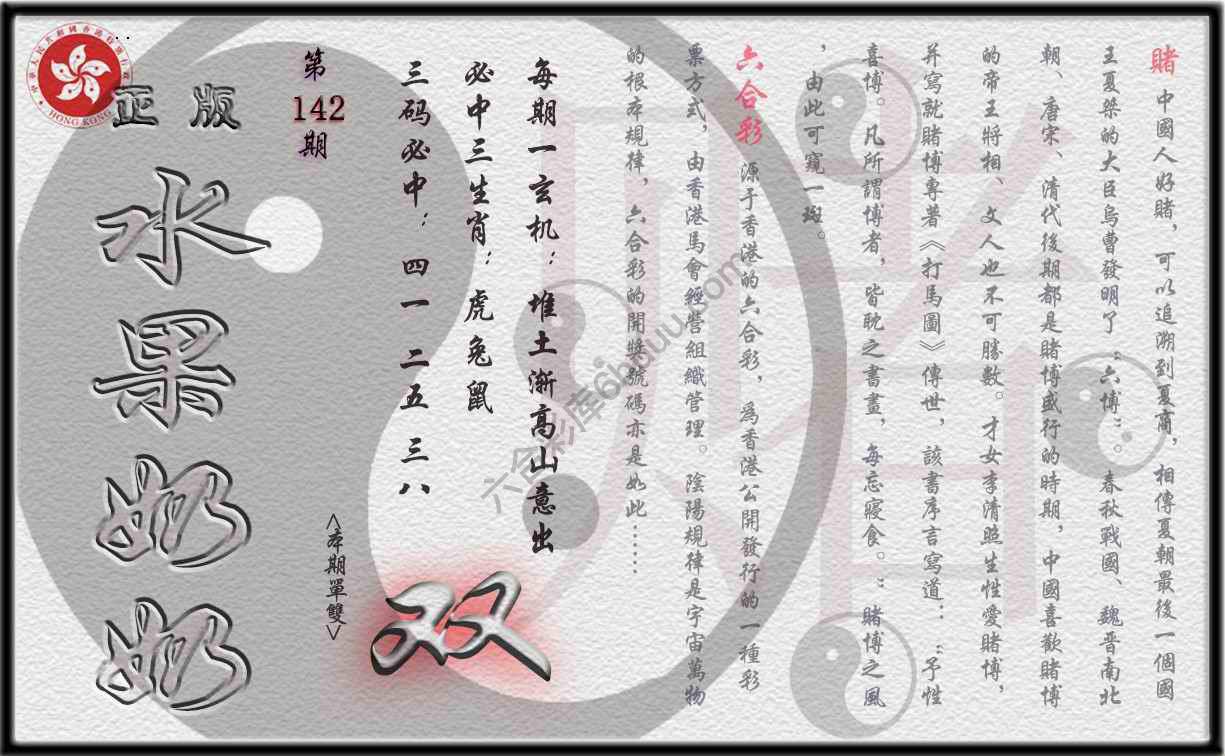 賭 中國人好賭，可以追溯到夏商，相傳夏朝最後一個國
王夏桀的大臣烏曹發明了“六博”。春秋戰國、魏晋南北
朝、唐宋、清代後期都是賭博盛行的時期，中國喜歡賭博
的帝王將相、文人也不可勝數。才女李清照生性愛賭博，
并寫就賭博專著《打馬圖》傳世，該書序言寫道：：“予性
喜博。凡所謂博者，皆耽之書畫，每忘寢食。”賭博之風
，由此可窺一斑。
六合彩 源于香港的六合彩，爲香港公開發行的一種彩
票方式，由香港馬會經營組織管理。陰陽規律是宇宙萬物
的根本規律，六合彩的開獎號碼亦是如此……
每期一玄机：堆土渐高山意出
必中三生肖：虎兔鼠
三码必中：四一 二五 三八
<本期單雙>
双
第
142
期
正版
水果奶奶
HONG KONG
六合彩库6htuuu.com